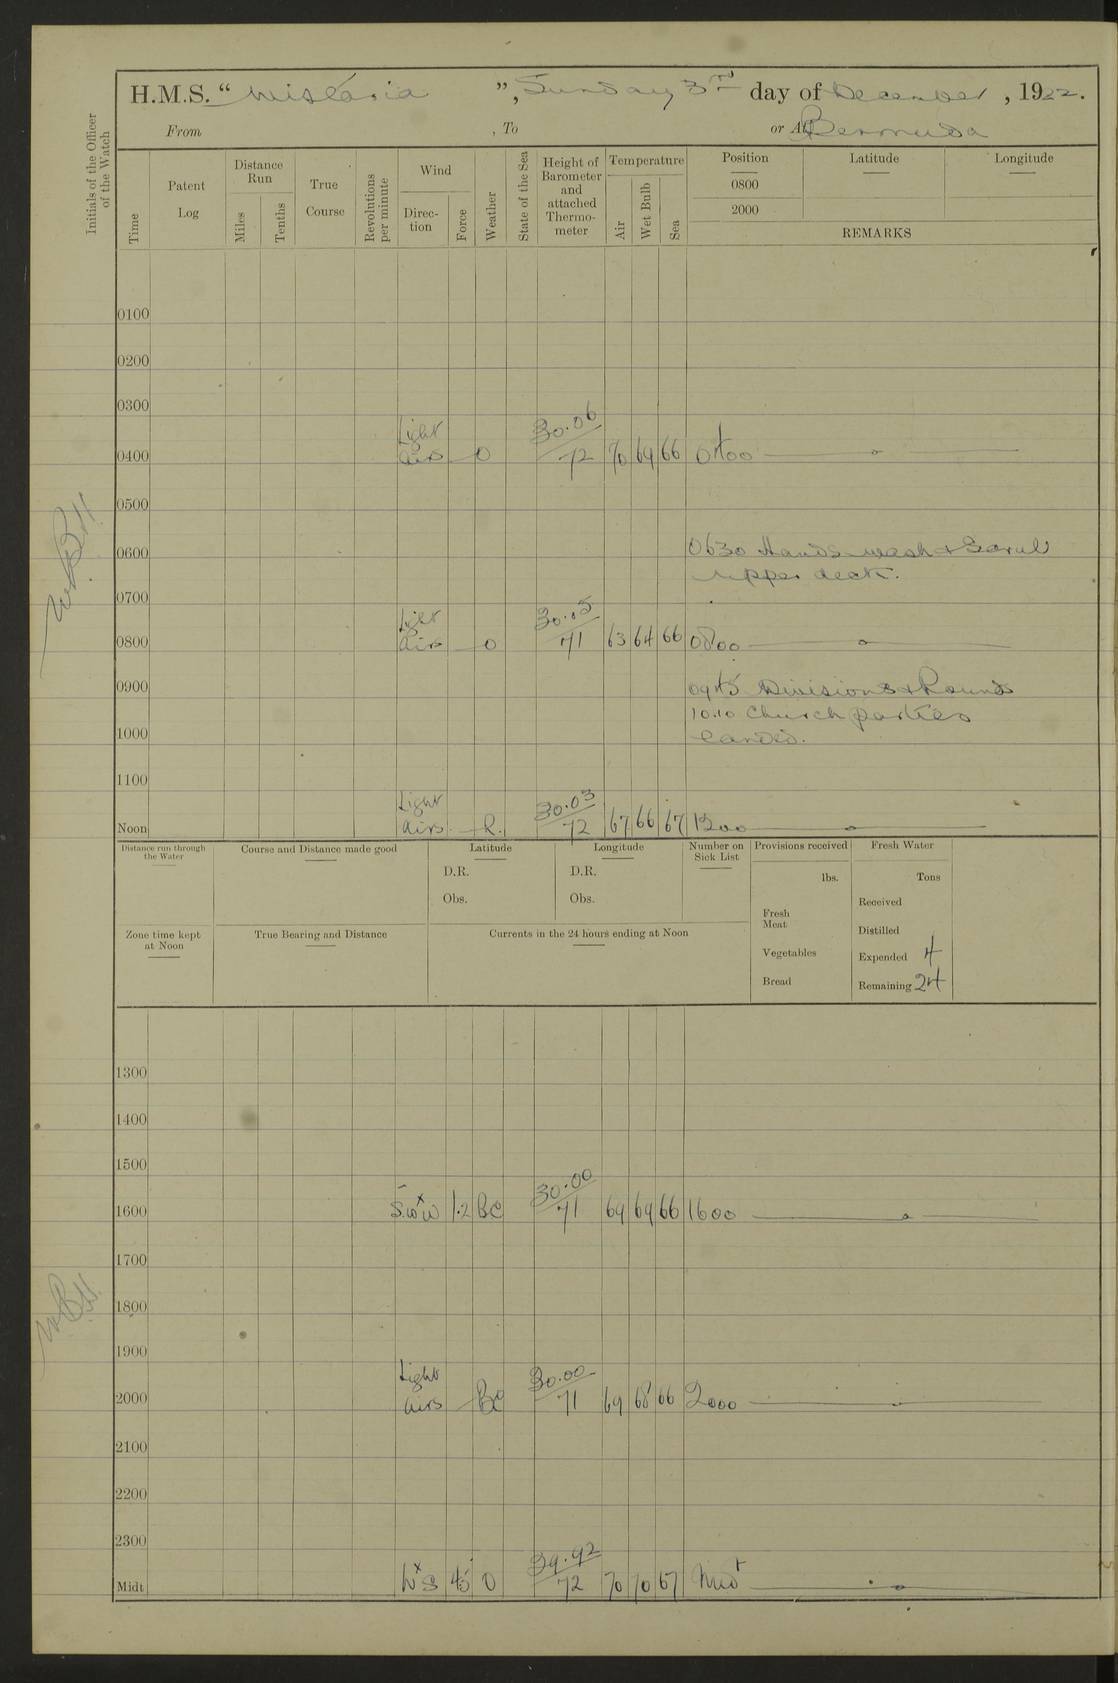 H.M.S. " Wistaria ", Sunday 3rd day of December, 1922.
From , To or At Bermuda
Initials of the Officer of the Watch
Time
Patent Log
Distance Run
Miles
Tenths
True Course
Revolutions per minute
Wind
Direction
Force
Weather
State of the Sea
Height of Barometer and attached Thermometer
Temperature
Air
Wet Bulb
Sea
Position Latitude Longitude
0800
2000
REMARKS
0100
0200
0300
0400 Light airs — O 30.06/72 70 69 66 0400
0500
0600 0630 Hands wash & Scrub
upper deck.
0700
0800 Light airs — O 30.05/71 63 64 66 0800
0900 0945 Divisions & Rounds
10.10 Church parties
1000 landed.
1100
Noon Light airs — R. 30.03/72 67 66 67 1200
Distance run through the Water
Course and Distance made good
Latitude
D.R.
Obs.
Longitude
D.R.
Obs.
Number on Sick List
Provisions received
lbs.
Fresh Meat
Vegetables
Bread
Fresh Water
Tons
Received
Distilled
Expended 4
Remaining 24
Zone time kept at Noon
True Bearing and Distance
Currents in the 24 hours ending at Noon
1300
1400
1500
1600 SWxW 1.2 BC 30.00/71 69 69 66 1600
1700
1800
1900
2000 Light airs — BC 30.00/71 69 68 66 2000
2100
2200
2300
Midt WxS 45 O 29.92/72 70 70 67 Midt